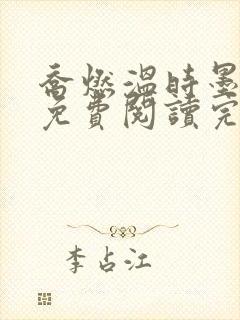 喬燃溫時墨
免費閱讀完
李占江